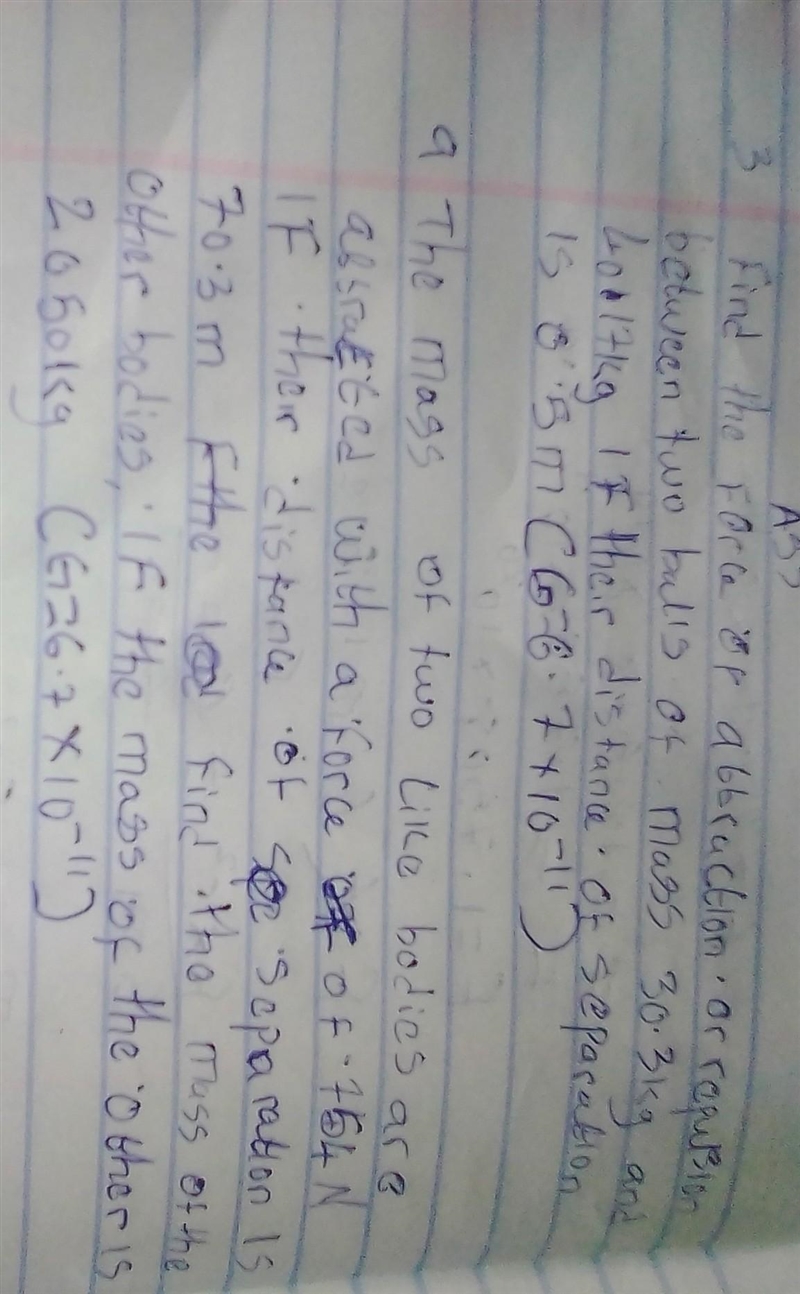 Ass
3 Find the Force of attraction or repulsion
between two balls of mass 30.3kg and
40.17kg IF their distance of separation
Is 0.5m (G=6.7×10⁻¹¹)
9 The mass of two Like bodies are
attracted with a force of 754N
IF their distance of separation Is
70.3m find the mass of the
other bodies, IF the mass of the other is
2050kg (G=6.7×10⁻¹¹)